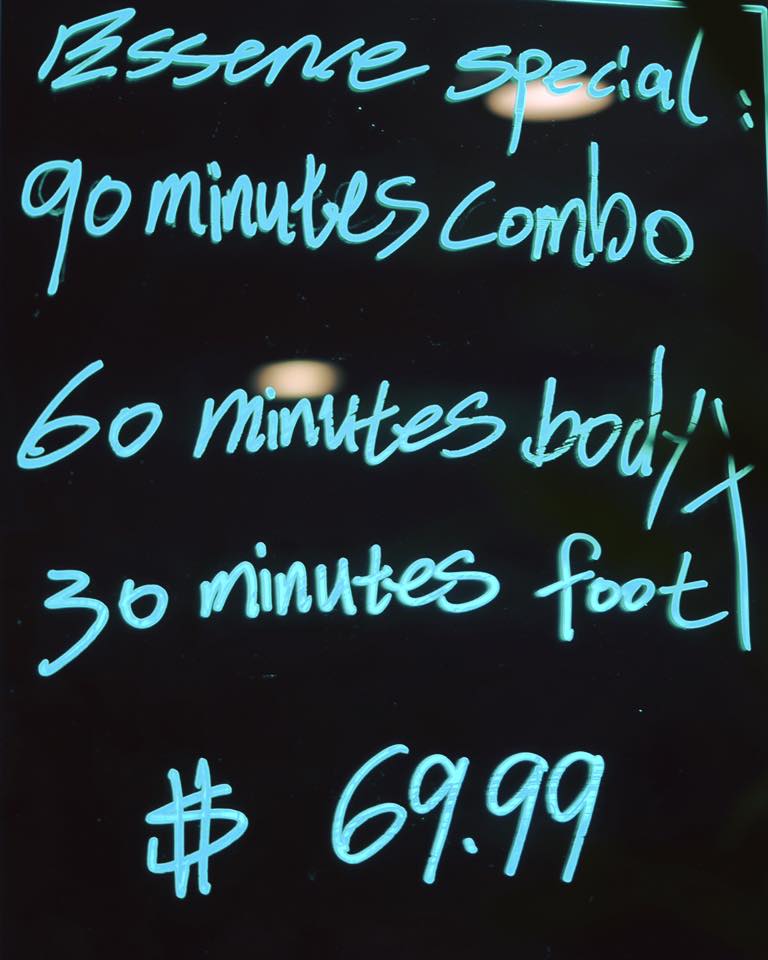 Essence special:
90 minutes combo
60 minutes body
30 minutes foot
$ 69.99